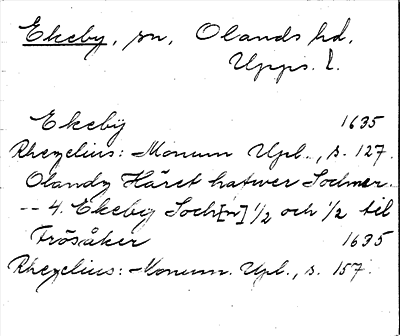 Ekeby, sn, Olands hd,
Upps. l.
Ekebÿ 1635
Rhezelius: Monum Upl., s. 127.
Olandz Häret hatwer Sochner.
-- 4. Ekeby Soch[n] 1/2 och 1/2 til
Frösåker 1635
Rhezelius: Monum. Upl., s. 157.